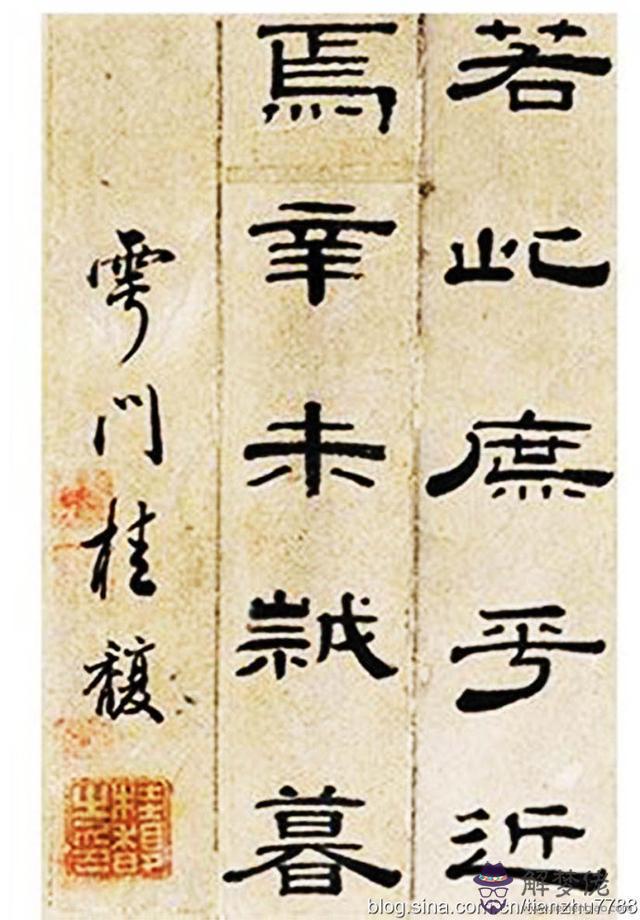 若此庶乎近
焉辛未歲暮
雩門桂馥
解梦佬
blog.sina.com.cn/tianzhu7788